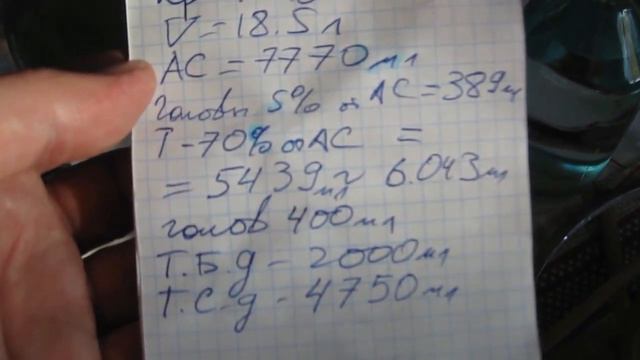 V = 18.5л
АС = 7770мл
головы 5% от АС = 389мл
Т - 70% от АС =
= 5439мл 6.043мл
голов 400мл
Т.Б.д - 2000мл
Т.С.д - 4750мл